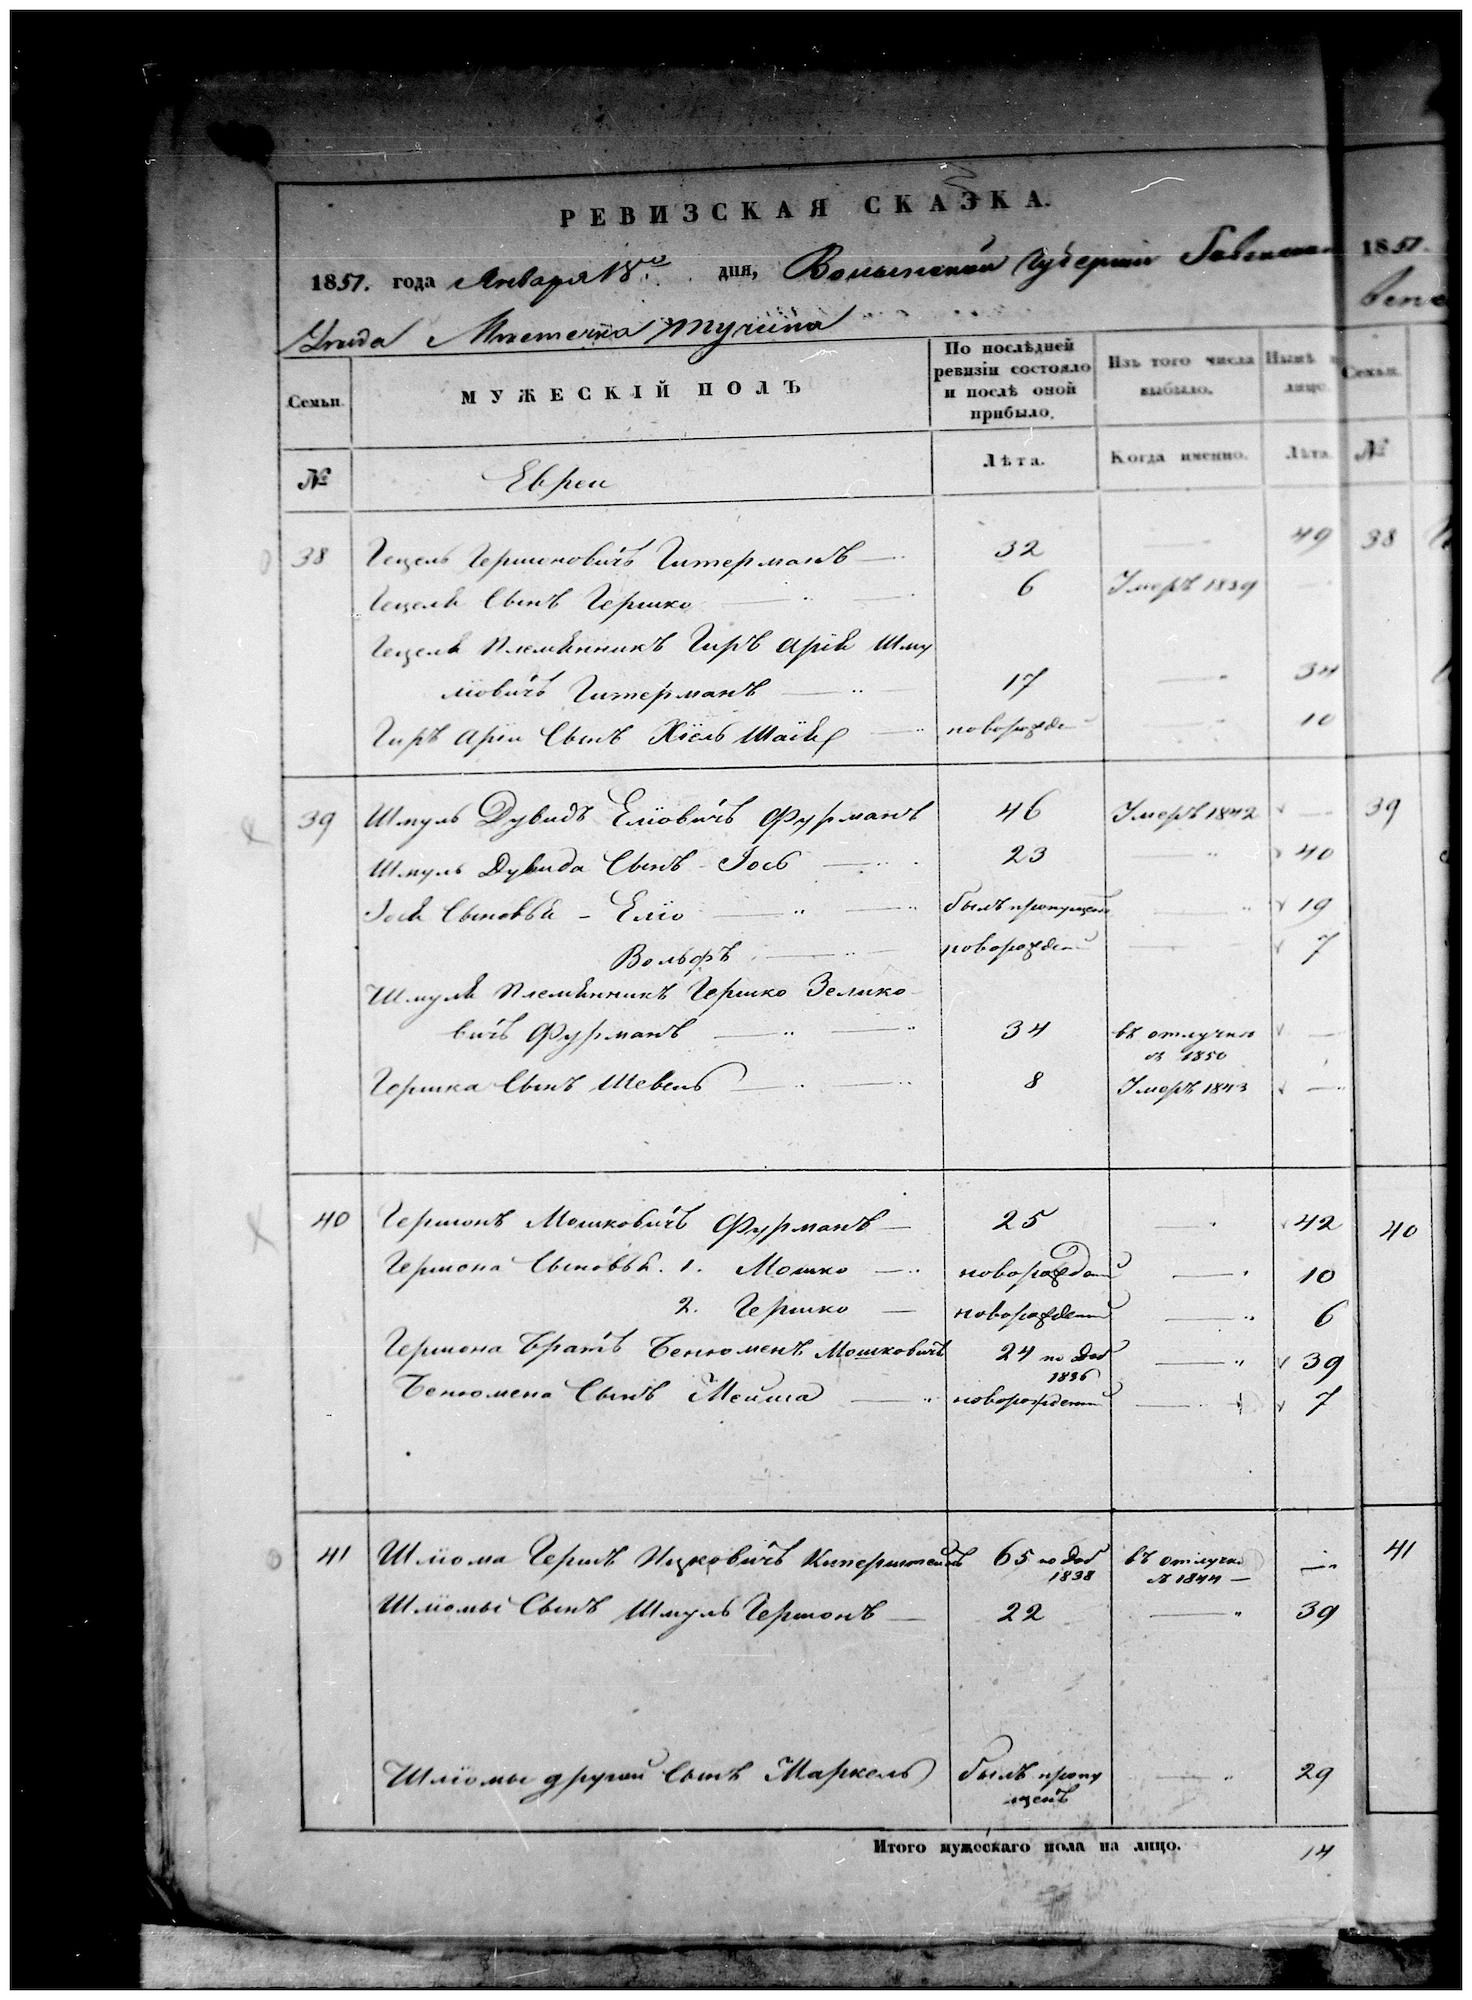 РЕВИЗСКАЯ СКАЗКА.
1851. года Января 18го дня, Волынской Губерніи
Уезда Местечка Тучина
Семьи.
МУЖЕСКІЙ ПОЛЪ
По послѣдней ревизіи состояло и послѣ оной прибыло.
Изъ того числа выбыло.
Нынѣ
лицо.
№
Евреи
Лѣта.
Когда именно.
Лѣта
38 Гецель Гершковичъ Гитерманъ 32 49
Гецеля Сынъ Гершко 6 Умеръ 1839
Гецеля Племянникъ Гиръ Арія Шму
ліовичъ Гитерманъ 17 34
Гиръ Аріи Сынъ Хіель Шаія новорожден 10
39 Шмуль Дувидъ Еліовичъ Фурманъ 46 Умеръ 1842
Шмуль Дувида Сынъ Іось 23 40
Іося Сыновья - Еліо былъ пропущенъ 19
Вольфъ новорожден 7
Шмуля Племянникъ Гершко Зелико
вичъ Фурманъ 34 въ отлучке
съ 1850
Гершка Сынъ Шевель 8 Умеръ 1843
40 Гершонъ Мошковичъ Фурманъ 25 42
Гершона Сыновья. 1. Мошко новорожденный 10
2. Гершко новорожденный 6
Гершона братъ Бенюменъ Мошковичъ 24 по доб
1836 39
Бенюмена Сынъ Мейша новорожденный 7
41 Шліома Гершъ Ицковичъ 65 по доб
1838 въ отлучке
съ 1844
Шліомы Сынъ Шмуль Гершонъ 22 39
Шліомы другой Сынъ Маркель былъ пропу
щенъ 29
Итого мужескаго пола на лицо. 14
1851.
Семьи.
№
38
39
40
41